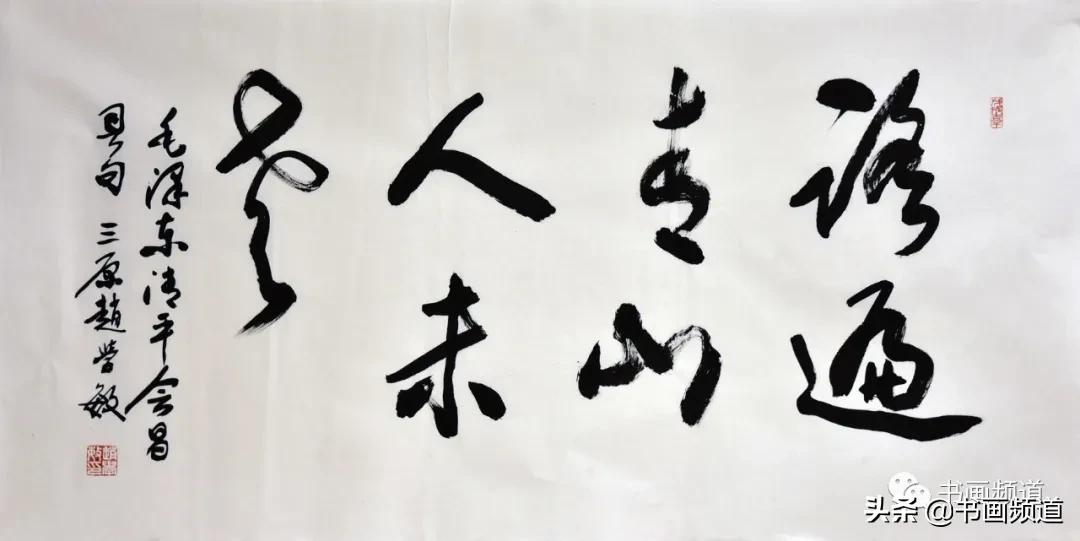 踏遍
青山
人未
老
毛泽东清平会昌
具句 三原趙敏
书画频道
头条 @书画频道